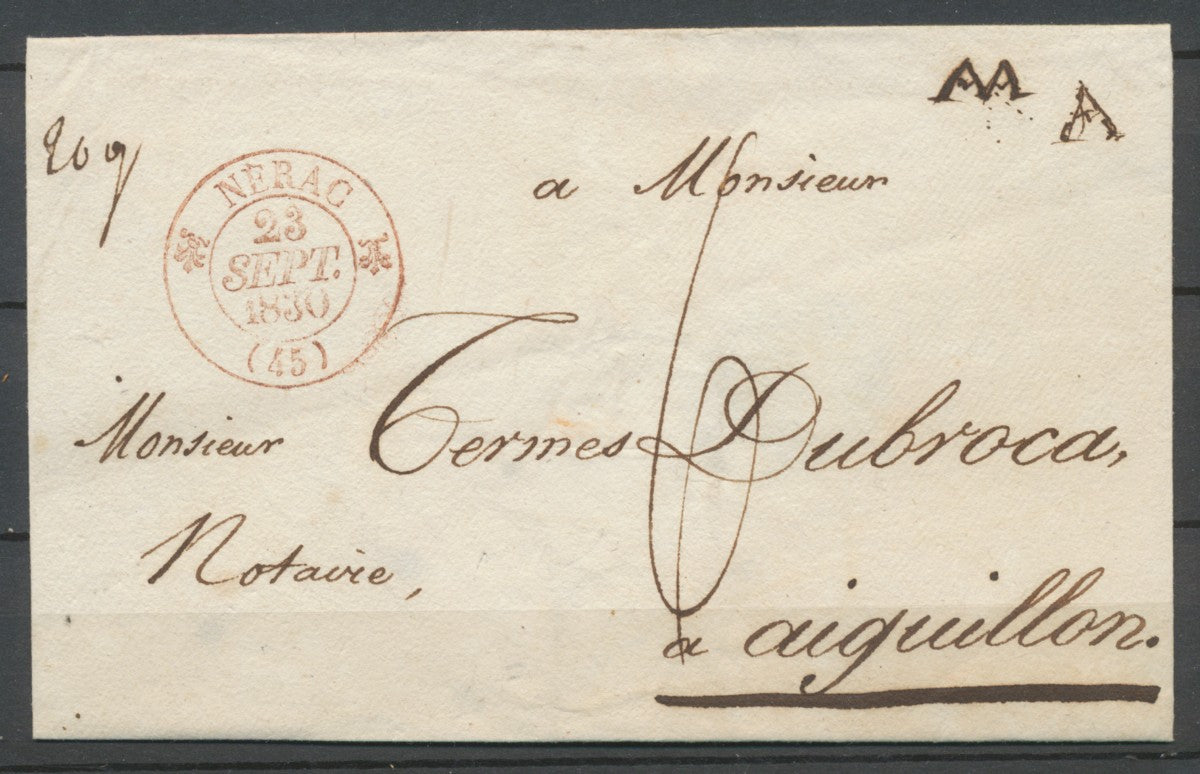 AA A
20 g
NÉRAC
23
SEPT.
1830
(45)
a Monsieur
Monsieur Termes Dubroca,
Notaire,
a aiguillon.